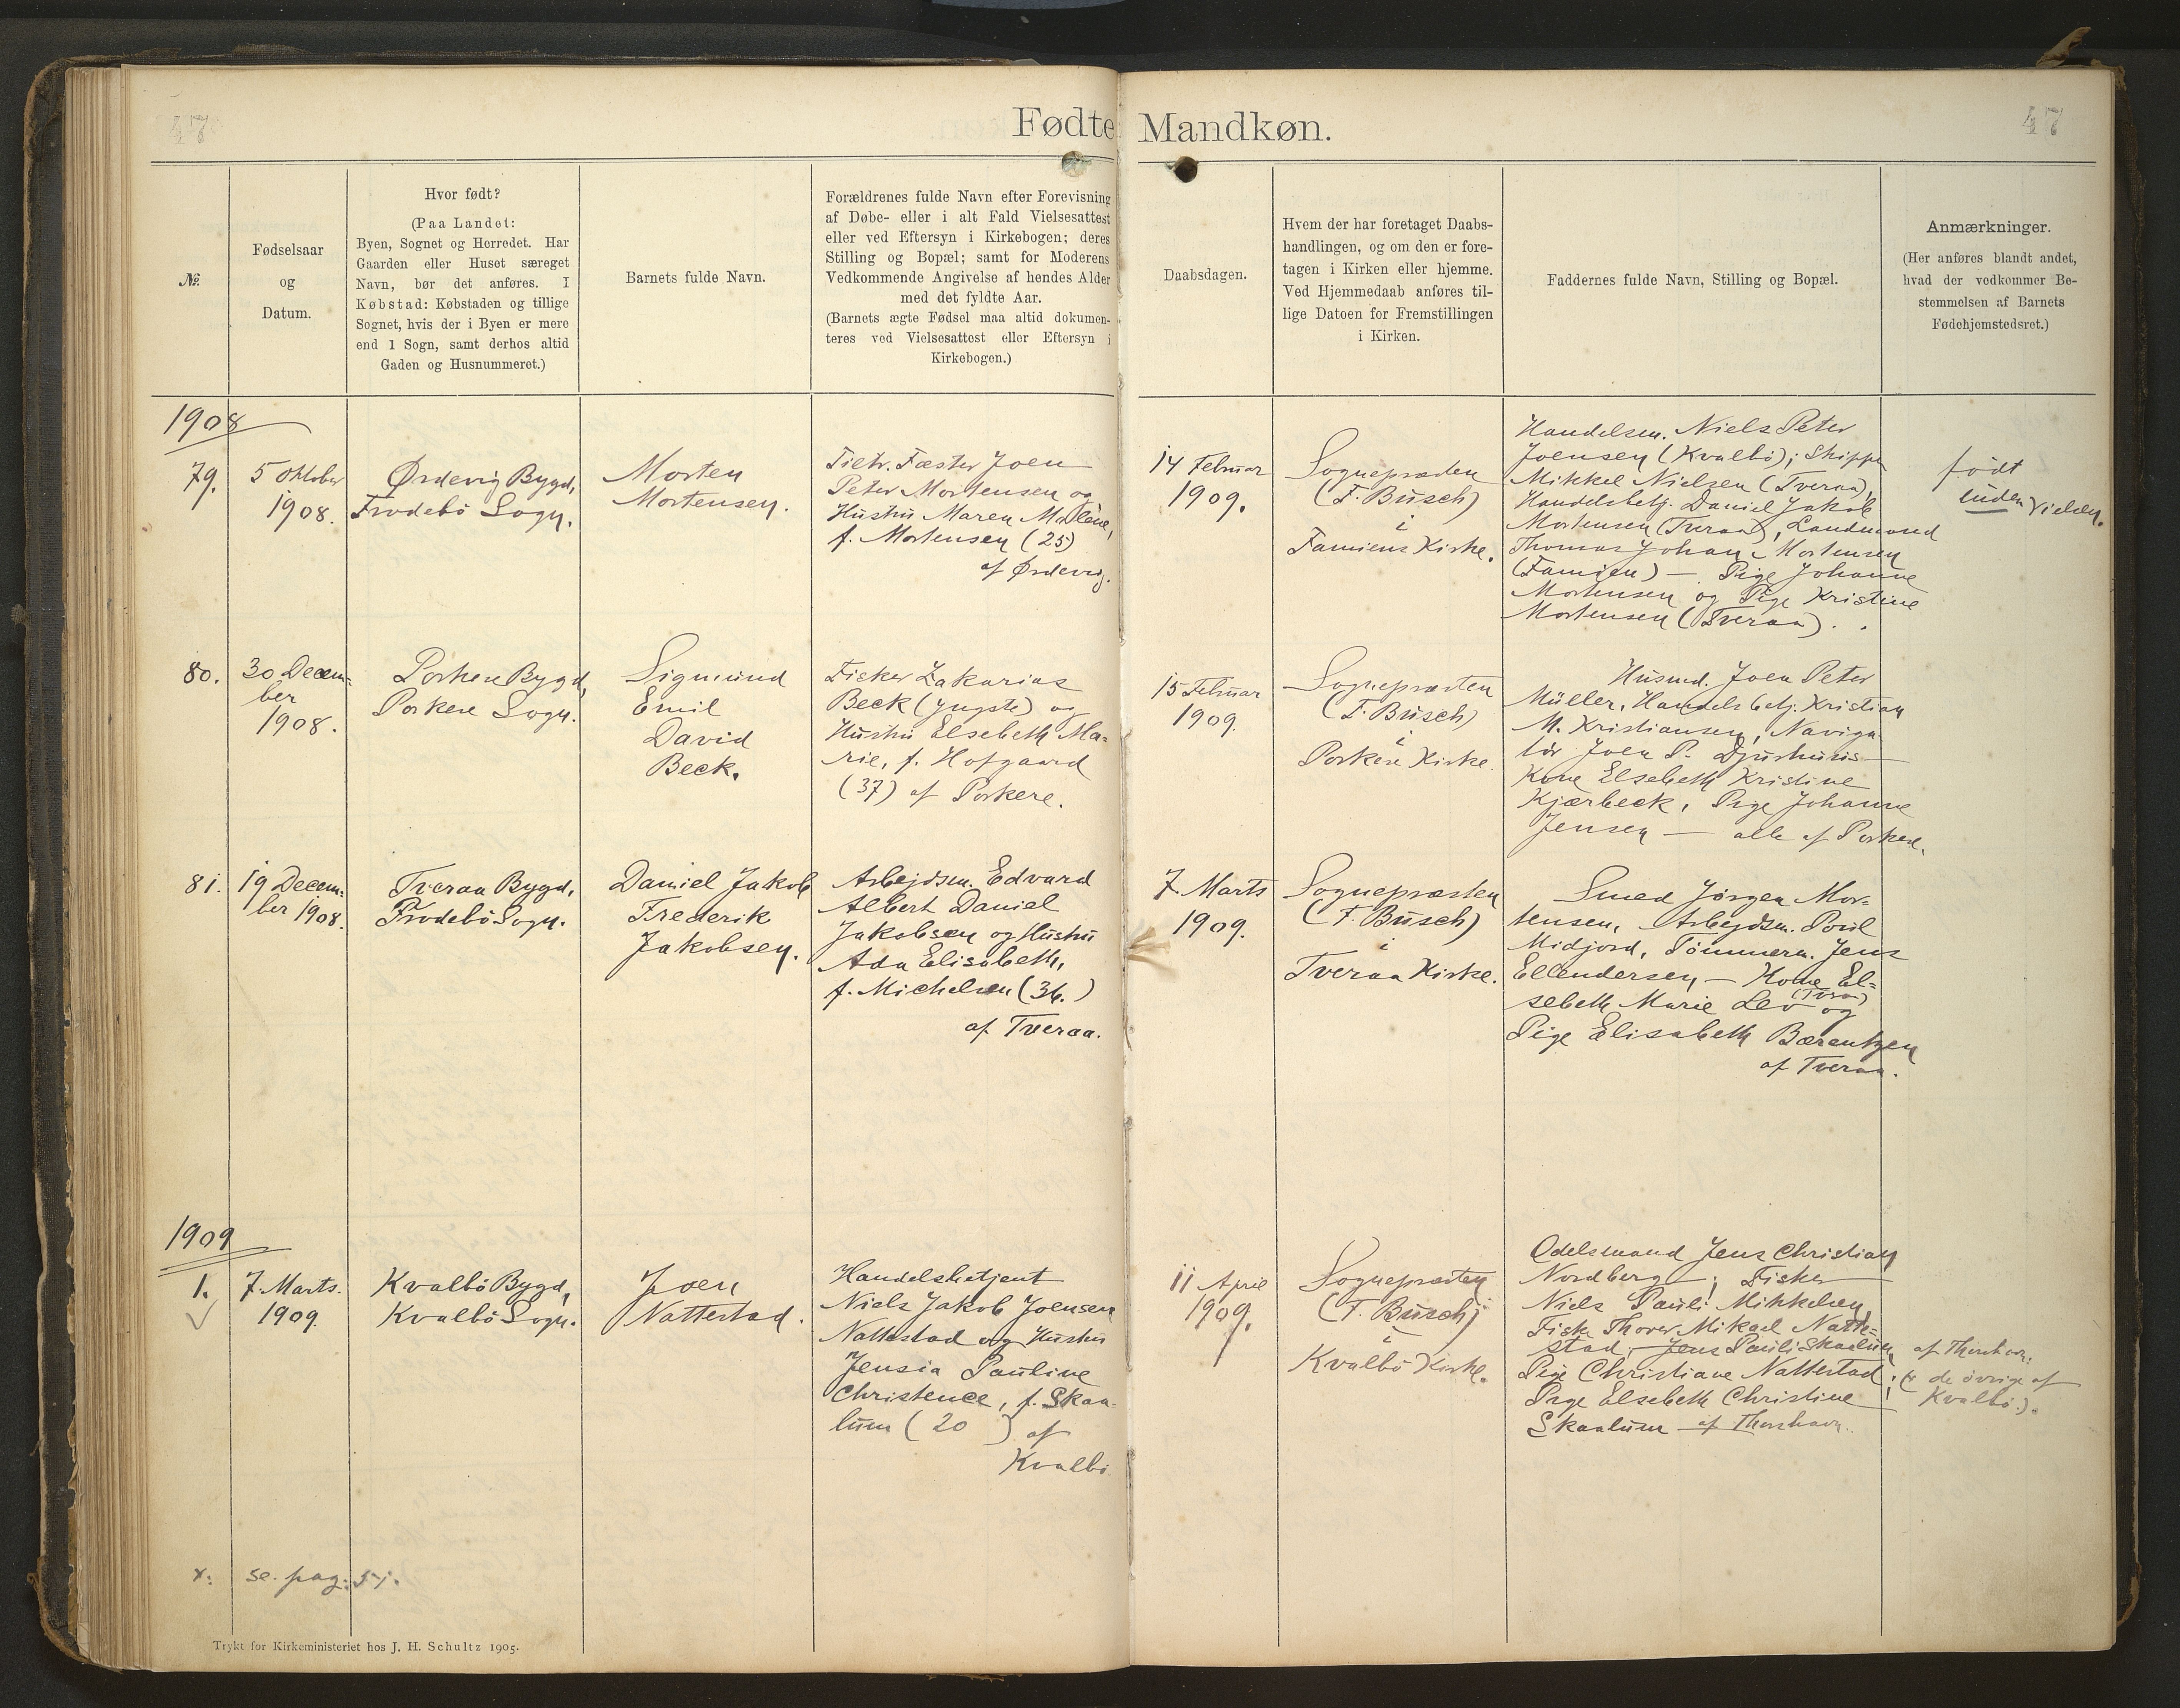 47
Fødte Mandkøn.
47
№
Fødselsaar
og
Datum.
Hvor født?
(Paa Landet:
Byen, Sognet og Herredet. Har
Gaarden eller Huset særeget
Navn, bør det anføres. I
Købstad: Købstaden og tillige
Sognet, hvis der i Byen er mere
end 1 Sogn, samt derhos altid
Gaden og Husnummeret.)
Barnets fulde Navn.
Forældrenes fulde Navn efter Forevisning
af Døbe- eller i alt Fald Vielsesattest
eller ved Eftersyn i Kirkebogen; deres
Stilling og Bopæl; samt for Moderens
Vedkommende Angivelse af hendes Alder
med det fyldte Aar.
(Barnets ægte Fødsel maa altid dokumen-
teres ved Vielsesattest eller Eftersyn i
Kirkebogen.)
Daabsdagen.
Hvem der har foretaget Daabs-
handlingen, og om den er fore-
tagen i Kirken eller hjemme.
Ved Hjemmedaab anføres til-
lige Datoen for Fremstillingen
i Kirken.
Faddernes fulde Navn, Stilling og Bopæl.
Anmærkninger.
(Her anføres blandt andet,
hvad der vedkommer Be-
stemmelsen af Barnets
Fødehjemstedsret.)
1908
79.
5 Oktober
1908.
Ørdevig Bygd,
Frodebö Sogn.
Morten
Mortensen.
Fæster Joen
Peter Mortensen og
Hustru Maren Malene,
f. Mortensen (25)
af Ørdevig.
14 Februar
1909.
Sognepræsten
(F. Busch)
i
Famiens Kirke.
Handelsm. Niels Peter
Joensen (Kvalbö); Skipper
Mikkel Nielsen (Tveraa),
Handelsbetj. Daniel Jakob
Mortensen (Tveraa), Landmand
Thomas Johan Mortensen
(Famien) — Pige Johanne
Mortensen og Pige Kristine
Mortensen (Tveraa).
født
uden Vielsen.
80.
30 Decem-
ber
1908.
Porkere Bygd,
Porkere Sogn.
Sigmund
Emil
David
Beck.
Fisker Zakarias
Beck (yngste) og
Hustru Elsebeth Ma-
rie, f. Hofgaard
(37) af Porkere.
15 Februar
1909.
Sognepræsten
(F. Busch)
i
Porkere Kirke.
Husmd. Joen Peter
Müller, Handelsbetj. Kristian
M. Kristiansen, Naviga-
tör Joen P. Djurhuus —
Kone Elsebeth Kristine
Kjærbeck, Pige Johanne
Jensen — alle af Porkere.
81.
19 Decem-
ber 1908.
Tveraa Bygd,
Frodebö Sogn.
Daniel Jakob
Frederik
Jakobsen.
Arbejdsm. Edvard
Albert Daniel
Jakobsen og Hustru
Ada Elisabeth,
f. Michelsen (36.)
af Tveraa.
7 Marts
1909.
Sognepræsten
(F. Busch)
i
Tveraa Kirke.
Smed Jörgen Mor-
tensen, Arbejdsm. Poul
Midjord, Tömmerm. Jens
Ellendersen, — Kone El-
sebeth Marie Lev og
Pige Elisabeth Bærentzen
af Tveraa.
1909
1.
7 Marts.
1909.
Kvalbö Bygd,
Kvalbö Sogn.
Joen
Nattestad.
Handelsbetjent
Niels Jakob Joensen
Nattestad og Hustru
Jensia Pauline
Christence, f. Skaa-
lum (20 ) af
Kvalbö
11 April
1909.
Sognepræsten
(F. Busch)
i
Kvalbö Kirke.
Odelsmand Jens Christian
Nordberg; Fisker
Niels Pauli Mikkelsen,
Fisk. Thorer Mikael Natte-
stad, Jens Pauli Skaalum
Pige Christiane Nattestad;
Pige Elsebeth Christine
Skaalum af Thorshavn.
af Thorshavn.
(de övrige af
Kvalbö.).
x: se. pag: 51.
Trykt for Kirkeministeriet hos J. H. Schultz 1905.